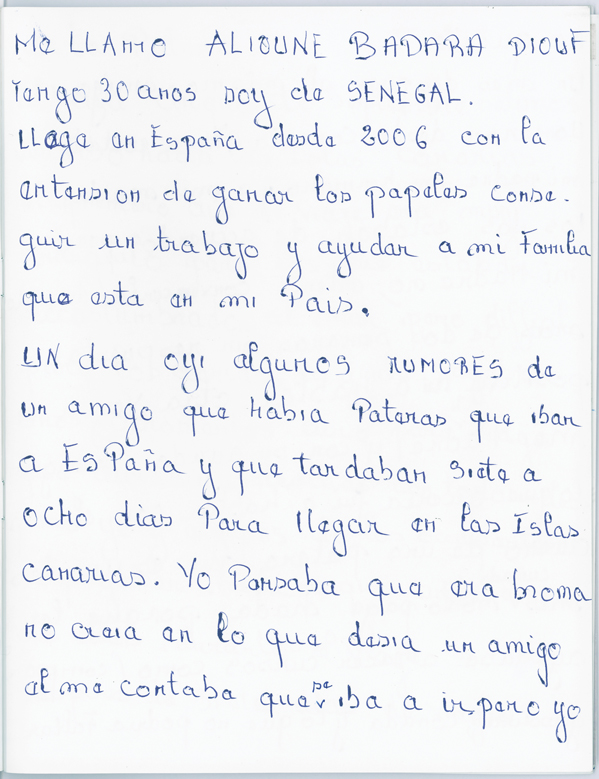 Me LLAmo ALIOUNE BADARA DIOUF
Tengo 30 anos soy de SENEGAL.
LLege en España desde 2006 con la
entension de ganar los papeles conse-
guir un trabajo y ayudar a mi Familia
que esta en mi Pais.
UN dia oyi algunos RUMORES de
un amigo que habia Pateras que iban
a EsPaña y que tardaban siete a
ocho dias Para llegar en las Islas
canarias. Yo Pensaba que era broma
no creia en lo que desia un amigo
el me contaba que se iba a ir, pero yo